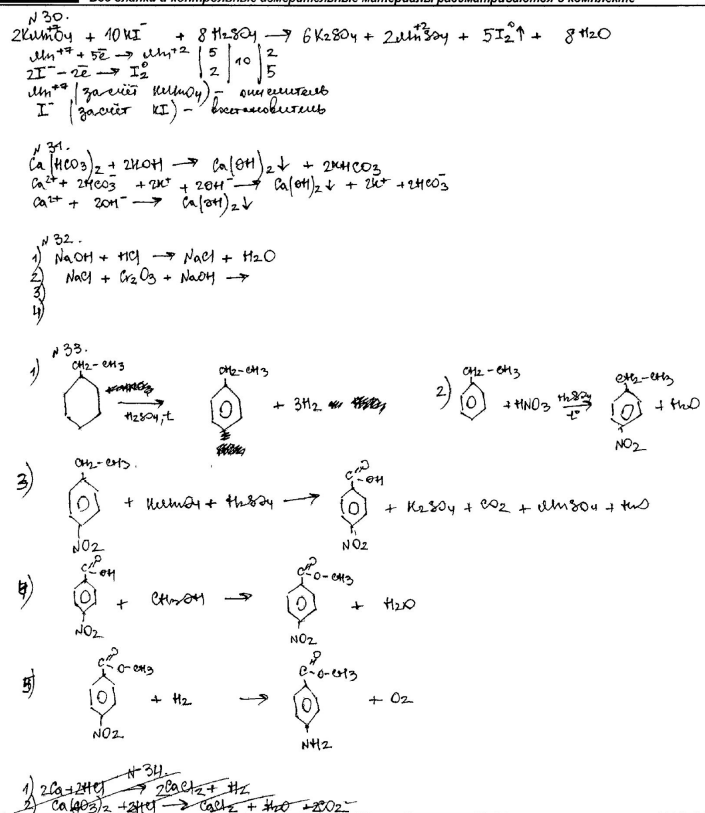 Все бланки и контрольные измерительные материалы рассматриваются в комплекте
№30.
2KMnO4 + 10KI⁻ + 8H2SO4 → 6K2SO4 + 2MnSO4 + 5I2↑ + 8H2O
Mn⁺⁷ + 5ē → Mn⁺² | 5 | 10 | 2
2I⁻ - 2ē → I2⁰ | 2 | | 5
Mn⁺⁷ (за счёт KMnO4) – окислитель
I⁻ (за счёт KI) – восстановитель
№31.
Ca(HCO3)2 + 2KOH → Ca(OH)2↓ + 2KHCO3
Ca²⁺ + 2HCO3⁻ + 2K⁺ + 2OH⁻ → Ca(OH)2↓ + 2K⁺ + 2HCO3⁻
Ca²⁺ + 2OH⁻ → Ca(OH)2↓
№32.
1) NaOH + HCl → NaCl + H2O
2) NaCl + Cr2O3 + NaOH →
3)
4)
№33.
1) CH2-CH3 → H2SO4, t CH2-CH3 + 3H2
2) CH2-CH3 + HNO3 → H2SO4 t° CH2-CH3 NO2 + H2O
3) CH2-CH3 NO2 + KMnO4 + H2SO4 → C=O -OH NO2 + K2SO4 + CO2 + MnSO4 + H2O
4) C=O -OH NO2 + CH3OH → C=O O-CH3 NO2 + H2O
5) C=O O-CH3 NO2 + H2 → C=O O-CH3 NH2 + O2
№34.
1) 2Ca + 2HCl → 2CaCl2 + H2